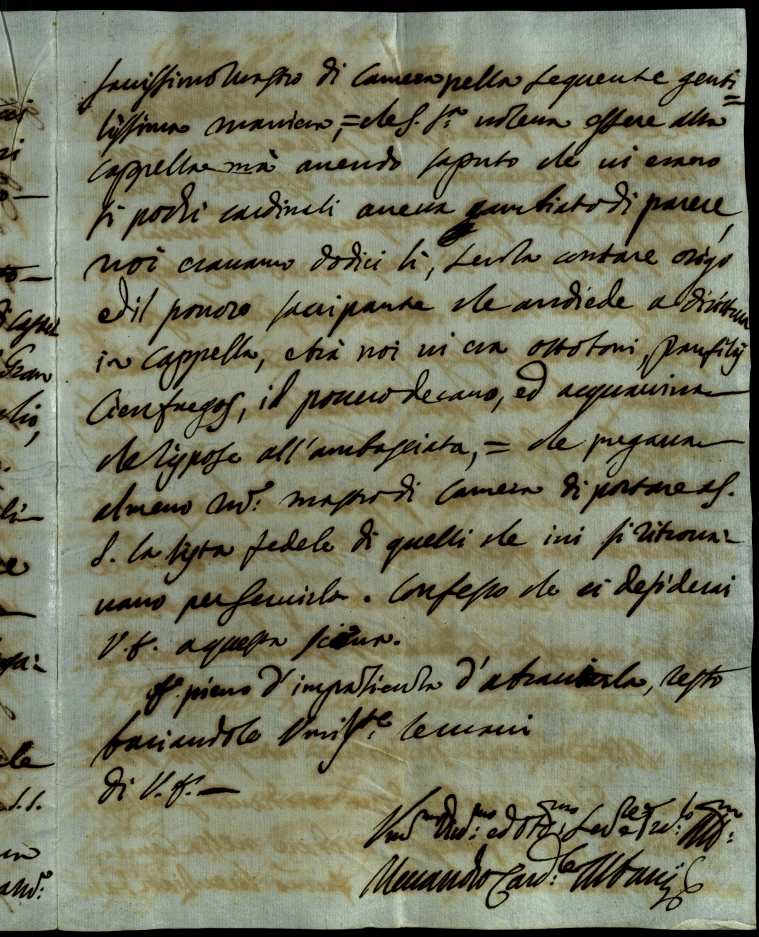 savissimo Mastro di Camera nella sequente genti=
lissima maniera, = che S. S.ta voleva essere alla
cappella mà avendo saputo che vi erano
si pochi cardinali aveva cambiato di parere,
noi eravamo dodici li, senza contare origo
ed il povero sacripante che andiede a dirittura
in Cappella, e trà noi vi era ottoboni, Panfilij
Cienfuegos, il povero decano, ed acquaviva
che rispose all'ambasciata, = che pregava
almeno Md.e mastro di Camera di portare a S.
S. la lista fedele di quelli che ivi si ritrova=
vano per servirla. Confesso che ci desiderai
V.E. a questa scena.
E pieno d'impazienza d'abracciarla, resto
baciandole Umilm.te le mani
di V.E.
Um.mo Dev.mo ed Obb.mo Ser.e
Alessandro Card.le Albani